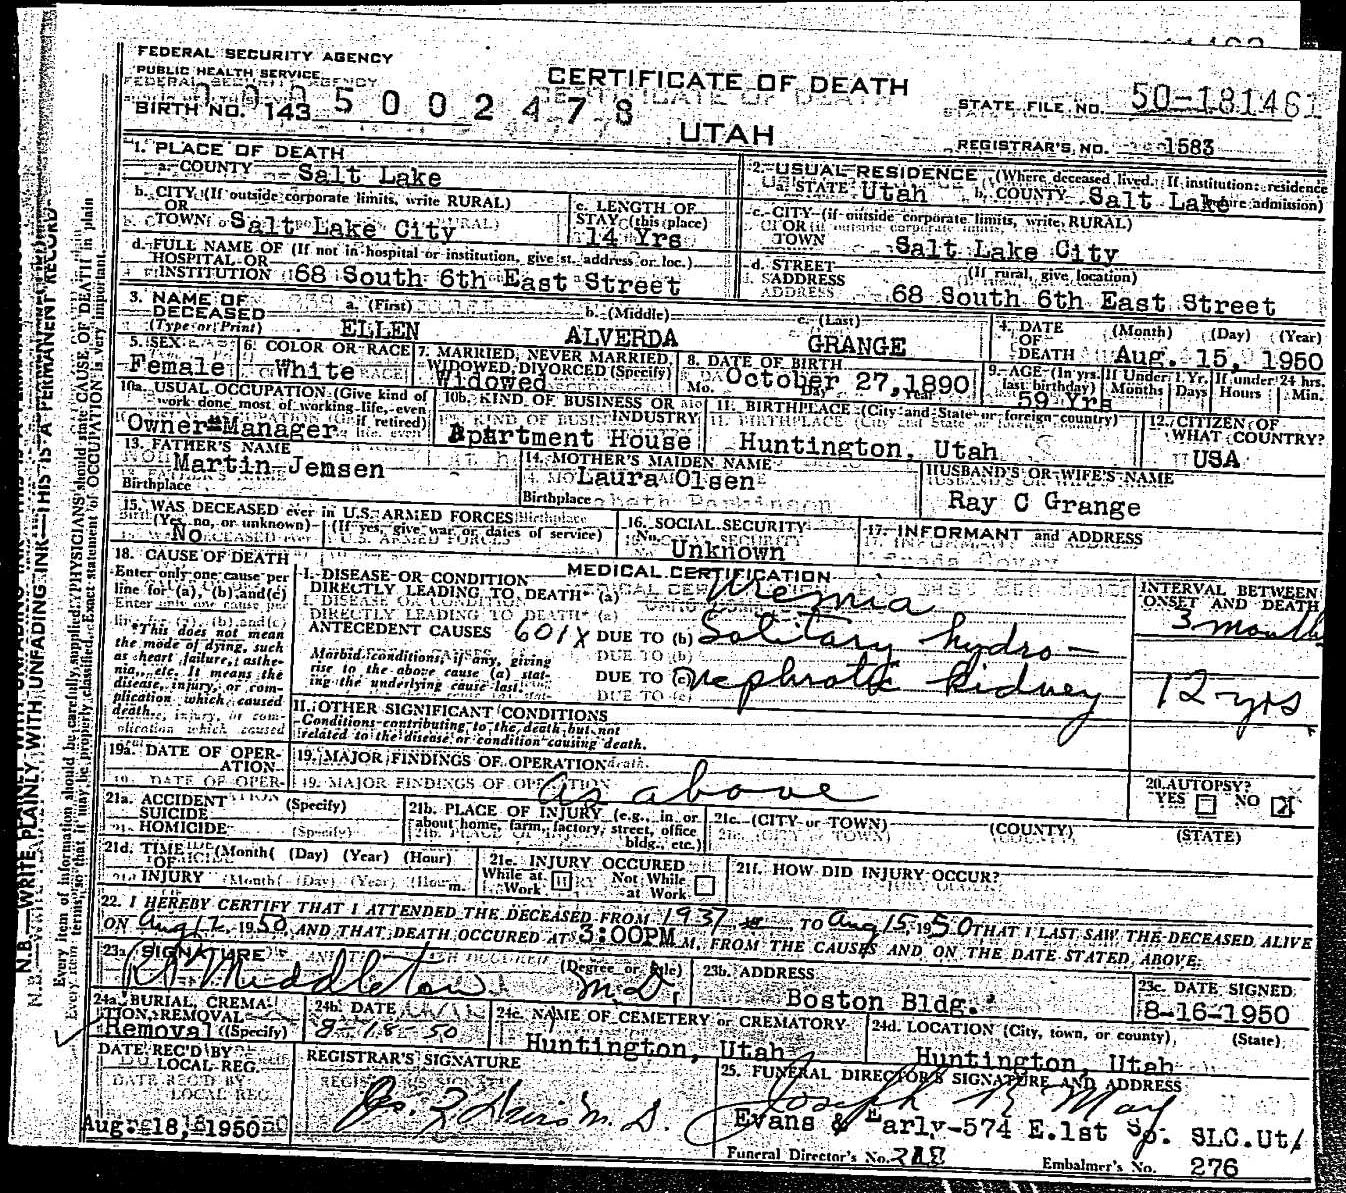 FEDERAL SECURITY AGENCY
PUBLIC HEALTH SERVICE
CERTIFICATE OF DEATH
BIRTH NO. 143 5 0 0 2 4 7 8
UTAH
STATE FILE NO. 50-181461
REGISTRAR'S NO. 1583
1. PLACE OF DEATH
a. COUNTY Salt Lake
2. USUAL RESIDENCE (Where deceased lived. If institution: residence before admission)
a. STATE Utah b. COUNTY Salt Lake
b. CITY (If outside corporate limits, write RURAL)
OR
TOWN Salt Lake City
c. LENGTH OF
STAY (this place)
14 Yrs
c. CITY (if outside corporate limits, write RURAL)
OR
TOWN Salt Lake City
d. FULL NAME OF (If not in hospital or institution, give st. address or loc.)
HOSPITAL OR
INSTITUTION 68 South 6th East Street
d. STREET (If rural, give location)
ADDRESS 68 South 6th East Street
3. NAME OF a. (First) b. (Middle) c. (Last)
DECEASED
(Type or Print) ELLEN ALVERDA GRANGE
4. DATE (Month) (Day) (Year)
OF
DEATH Aug. 15, 1950
5. SEX
Female
6. COLOR OR RACE
White
7. MARRIED, NEVER MARRIED,
WIDOWED, DIVORCED (Specify)
Widowed
8. DATE OF BIRTH
October 27, 1890
Mo. Day Year
9. AGE (In yrs. last birthday)
59 Yrs
If Under 1 Yr.
Months Days
If under 24 hrs.
Hours Min.
10a. USUAL OCCUPATION (Give kind of
work done most of working life, even
if retired)
Owner-Manager
10b. KIND OF BUSINESS OR
INDUSTRY
Apartment House
11. BIRTHPLACE (City and State or foreign country)
Huntington, Utah
12. CITIZEN OF
WHAT COUNTRY?
USA
13. FATHER'S NAME
Martin Jemsen
Birthplace
14. MOTHER'S MAIDEN NAME
Laura Olsen
Birthplace
HUSBAND'S OR WIFE'S NAME
Ray C Grange
15. WAS DECEASED ever in U.S. ARMED FORCES
(Yes, no, or unknown) (If yes, give war or dates of service)
No
16. SOCIAL SECURITY
No.
Unknown
17. INFORMANT and ADDRESS
18. CAUSE OF DEATH
Enter only one cause per
line for (a), (b) and (c)
*This does not mean
the mode of dying, such
as heart failure, asthe-
nia, etc. It means the
disease, injury, or com-
plication which caused
death.
MEDICAL CERTIFICATION
I. DISEASE OR CONDITION
DIRECTLY LEADING TO DEATH* (a) Uremia
ANTECEDENT CAUSES 601X DUE TO (b) Solitary hydro-
Morbid conditions, if any, giving
rise to the above cause (a) stat-
ing the underlying cause last.
DUE TO (c) nephrotic kidney
INTERVAL BETWEEN
ONSET AND DEATH
3 months
12 yrs
II. OTHER SIGNIFICANT CONDITIONS
Conditions contributing to the death but not
related to the disease or condition causing death.
19a. DATE OF OPER-
ATION
19. MAJOR FINDINGS OF OPERATION
as above
20. AUTOPSY?
YES NO X
21a. ACCIDENT (Specify)
SUICIDE
HOMICIDE
21b. PLACE OF INJURY (e.g., in or
about home, farm, factory, street, office
bldg., etc.)
21c. (CITY or TOWN) (COUNTY) (STATE)
21d. TIME (Month) (Day) (Year) (Hour)
OF
INJURY m.
21e. INJURY OCCURED
While at Work Not While at Work
21f. HOW DID INJURY OCCUR?
22. I HEREBY CERTIFY THAT I ATTENDED THE DECEASED FROM 1937 TO Aug 15 1950 THAT I LAST SAW THE DECEASED ALIVE
ON Aug 12, 1950, AND THAT DEATH OCCURED AT 3:00PM M, FROM THE CAUSES AND ON THE DATE STATED ABOVE.
23a. SIGNATURE (Degree or title)
Middleton M.D.
23b. ADDRESS
Boston Bldg.
23c. DATE SIGNED
8-16-1950
24a. BURIAL, CREMA-
TION, REMOVAL
Removal (Specify)
24b. DATE
8-18-50
24c. NAME OF CEMETERY or CREMATORY
Huntington, Utah
24d. LOCATION (City, town, or county) (State)
Huntington, Utah
DATE REC'D BY
LOCAL REG.
Aug. 18, 1950
REGISTRAR'S SIGNATURE
25. FUNERAL DIRECTOR'S SIGNATURE AND ADDRESS
Joseph R May
Evans & Early-574 E.1st So. SLC.Ut
Funeral Director's No.
Embalmer's No. 276
N.B.—WRITE PLAINLY WITH UNFADING INK—THIS IS A PERMANENT RECORD
Every item of information should be carefully supplied. PHYSICIANS should state CAUSE OF DEATH in plain
terms, so that it may be properly classified. Exact statement of OCCUPATION is very important.